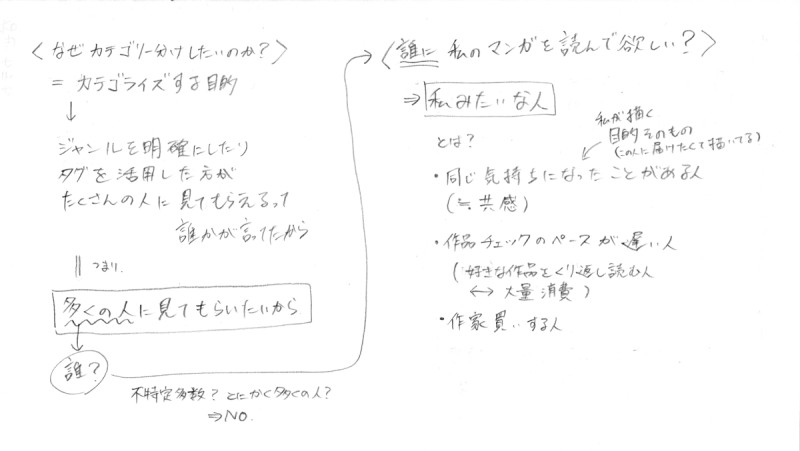 〈なぜカテゴリー分けしたいのか？〉
＝ カテゴライズする目的
↓
ジャンルを明確にしたり
タグを活用した方が
たくさんの人に見てもらえるって
誰かが言ってたから
|| つまり、
多くの人に見てもらいたいから
誰？
不特定多数？とにかく多くの人？
⇒NO.
〈誰に 私のマンガを読んで欲しい？〉
⇒ 私みたいな人
とは？
私が描く
目的そのもの
(この人に届けたくて描いてる)
・同じ気持ちになったことがある人
(≒共感)
・作品チェックのペースが遅い人
(好きな作品をくり返し読む人
↔ 大量消費)
・作家買いする人